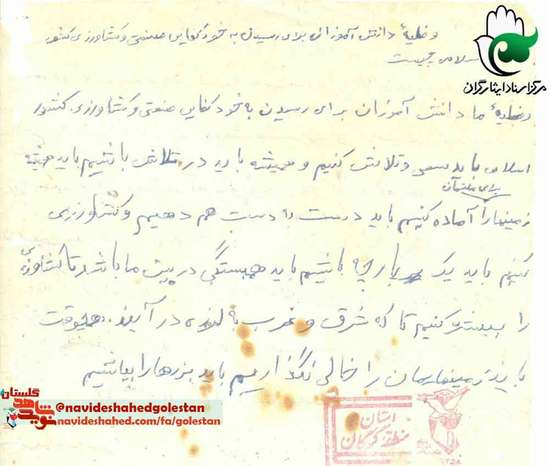 وظیفهٔ دانش آموزان برای رسیدن به خودکفایی صنعتی و کشاورزی کشور
اسلامی چیست
مرکز اسناد ایثارگران
وظیفهٔ ما دانش آموزان برای رسیدن به خودکفایی صنعتی و کشاورزی کشور
اسلامی باید سعی و تلاش کنیم و همیشه باید در تلاش باشیم باید همیشه
برای
زمینها را آماده کنیم باید دست را دست هم دهیم و کشاورزی
کنیم باید یک پارچه باشیم باید همبستگی در پیش ما باشد تا کشاورزی
را بیشتر کنیم تا که شرق و غرب به لرزه در آیند. هیچوقت
باید زمینهایمان را خالی نگذاریم باید بزرها را بپاشیم
استان
منطقه گرگان
نوید شاهد
گلستان
@navideshahedgolestan
navideshahed.com/fa/golestan